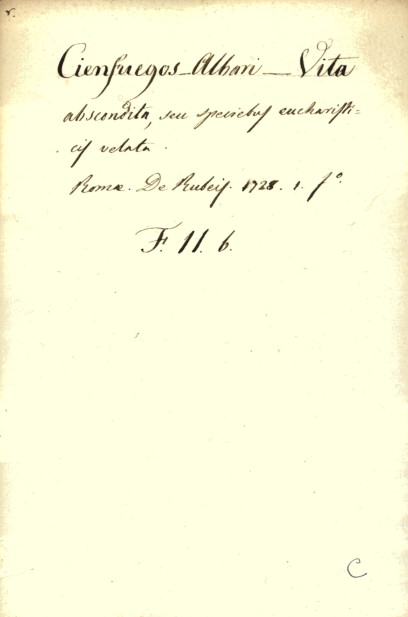 r.
Cienfuegos Albari — Vita
abscondita, seu speciebus eucharisti=
cis velata.
Romæ. De Rubeis. 1728. 1. fº.
F. 11. 6.
C